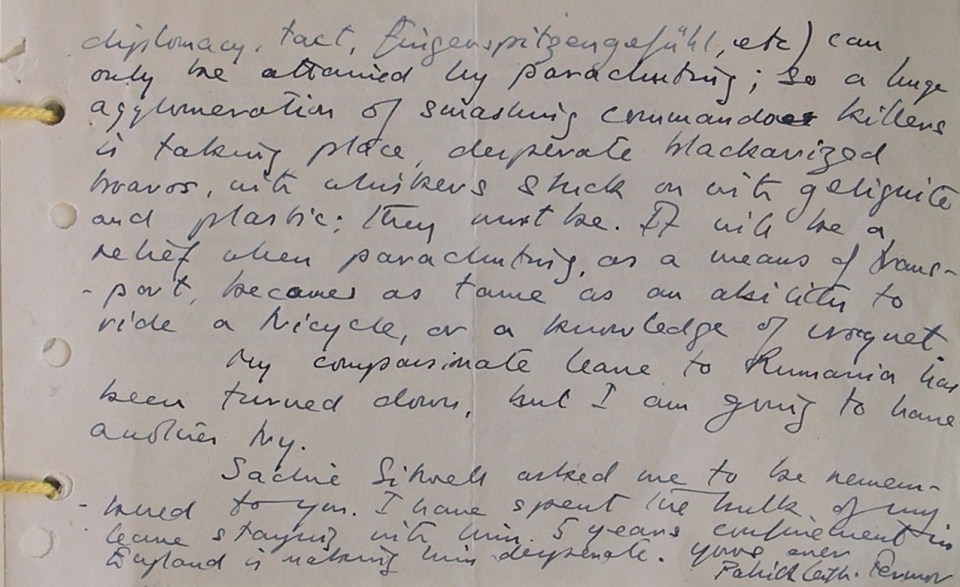 diplomacy, tact, Fingerspitzengefühl, etc) can
only be attained by parachuting; so a huge
agglomeration of smashing commandoes killers
is taking place, desperate blackavized
bravos, with whiskers stuck on with gelignite
and plastic: they must be. It will be a
relief when parachuting, as a means of trans-
-port, becomes as tame as an ability to
ride a tricycle, or a knowledge of croquet.
My compassionate leave to Rumania has
been turned down, but I am going to have
another try.
Sachie Sitwell asked me to be remem-
-bered to you. I have spent the bulk of my
leave staying with him. 5 years confinement in
England is making him desperate. yours ever
Patrick Leigh. Fermor